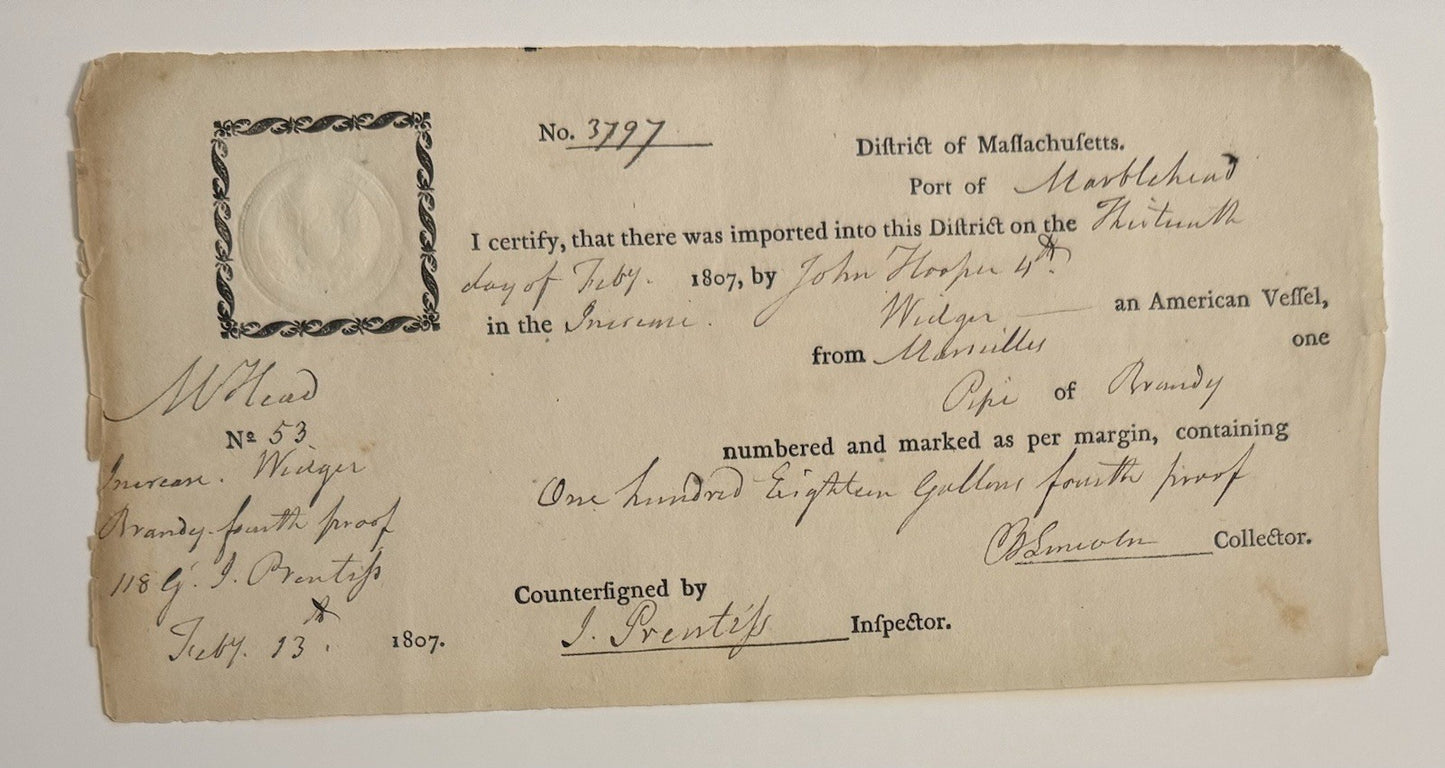 No. 3797
Diſtrict of Maſſachuſetts.
Port of Marblehead
I certify, that there was imported into this Diſtrict on the Thirteenth
day of Feby. 1807, by John Hooper 4th.
in the Increase. Widger — an American Veſſel,
from Marseilles one
Pipe of Brandy
numbered and marked as per margin, containing
One hundred Eighteen Gallons fourth proof
Lincoln Collector.
Counterſigned by
J. Prentiſs Inſpector.
MHead
No 53.
Increase. Widger
Brandy fourth proof
118 G. J. Prentiſs
Feby. 13th. 1807.